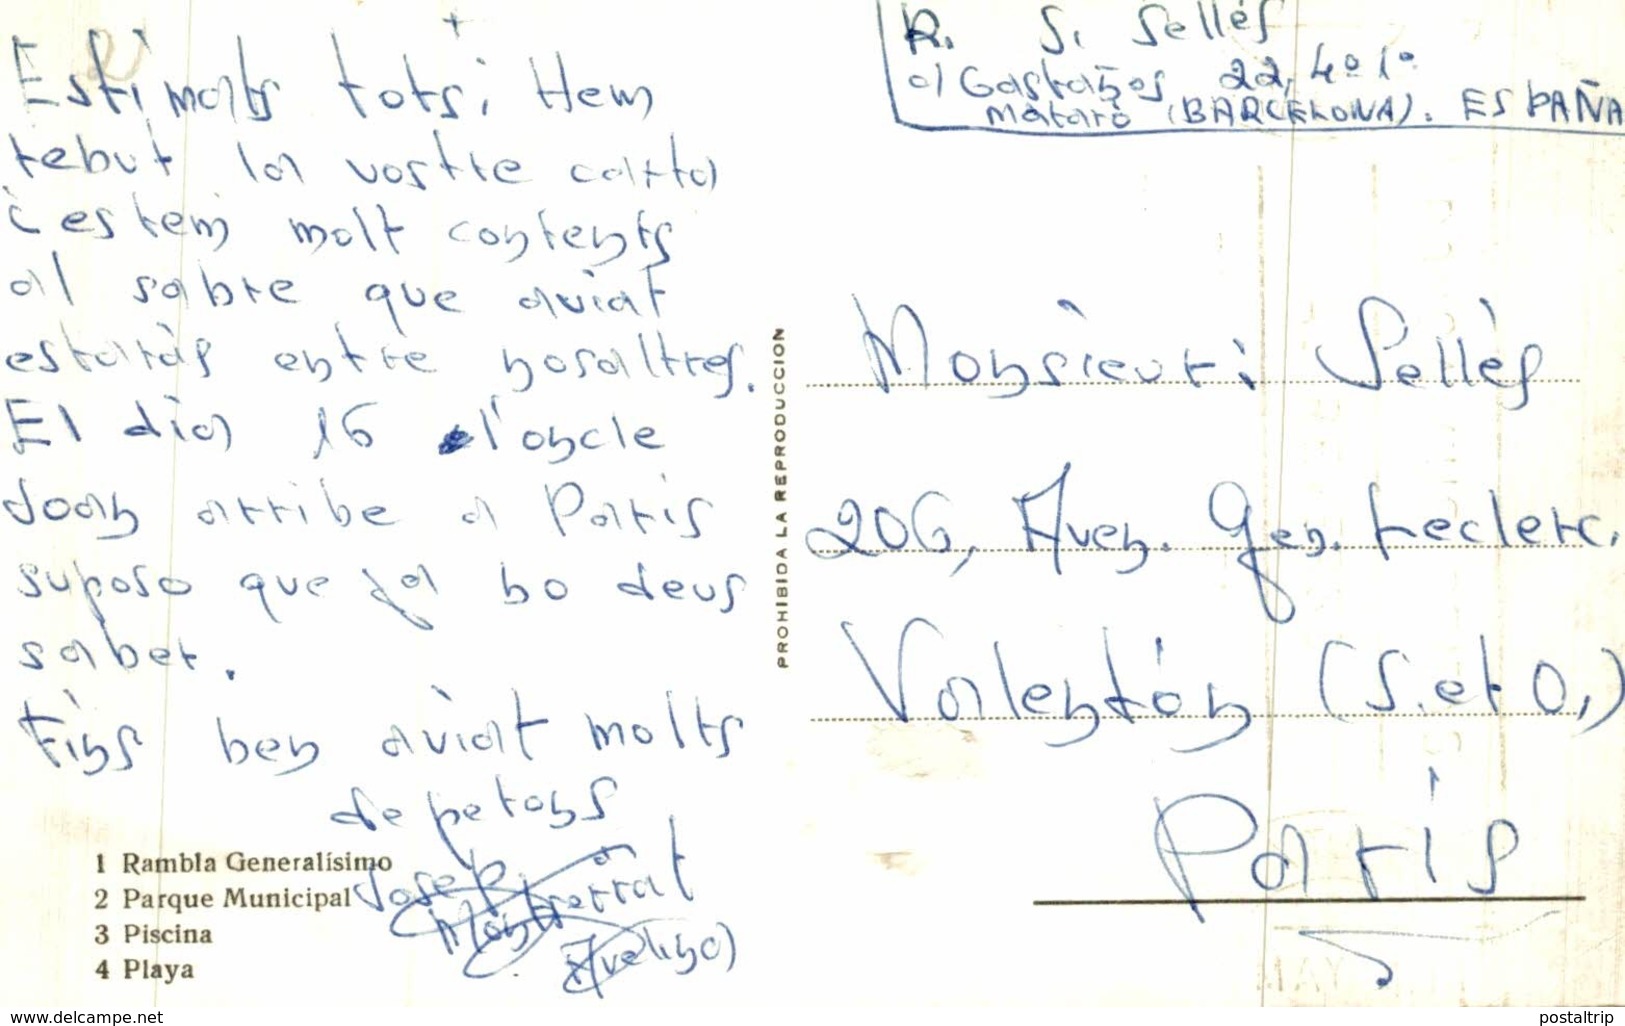 Estimats tots; Hem
rebut la vostre carta
i estem molt contents
al sabre que aviat
estaràs entre nosaltres.
El dia 16 l'oncle
Joan arribe a Paris
suposo que ja ho deus
saber.
Fins ben aviat molts
de petons
Josep
Montserrat
Avelina
1 Rambla Generalísimo
2 Parque Municipal
3 Piscina
4 Playa
PROHIBIDA LA REPRODUCCION
R. S. Sellés
c/ Gastaños 22, 4º 1º
Mataró (BARCELONA). ESPAÑA
Monsieur: Sellés
206, Aven. Gen. Leclerc.
Valentón (S. et O.)
Paris
www.delcampe.net
postaltrip